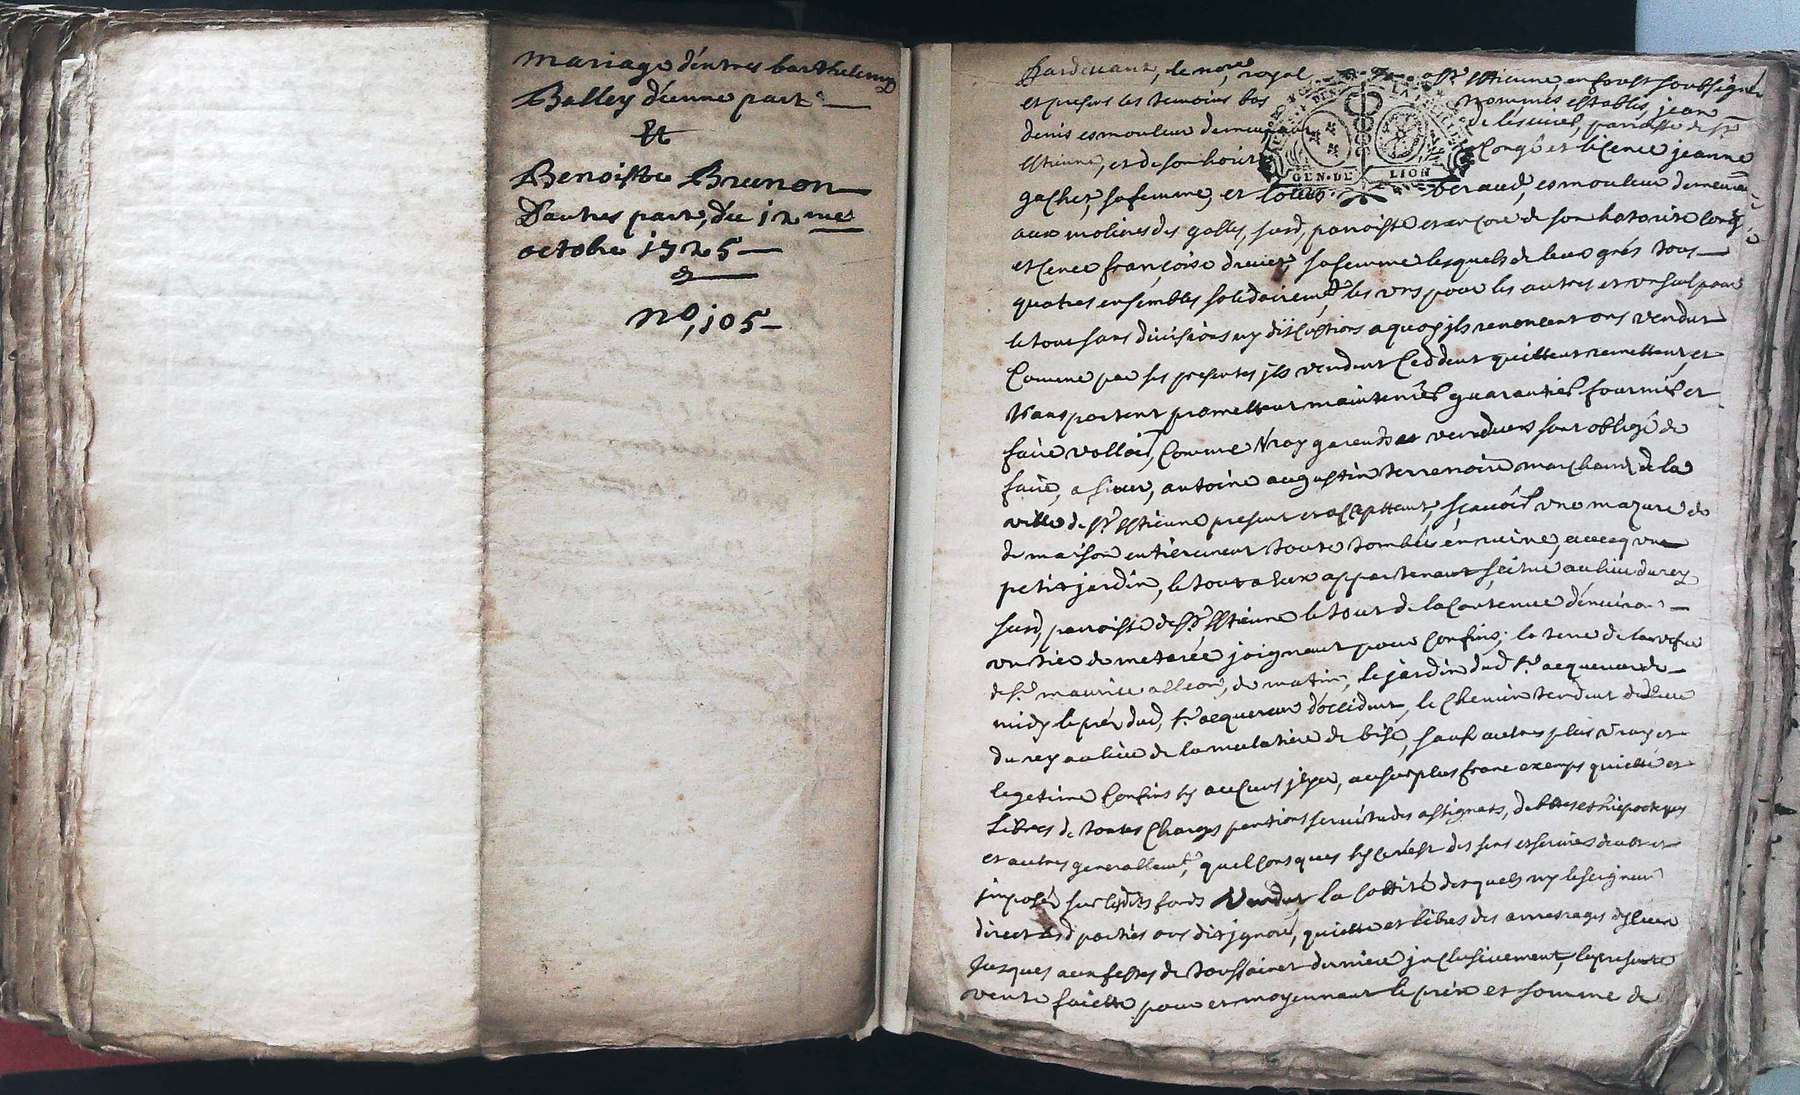 mariage d'entres barthelemy
Balley d'eunne part
Et
Benoiste Brunon
D'autres part, du 12 mes
octobre 1725
no, 105
Pardevant, le no.re royal St Estienne, en forest soubsigné
et presens les temoins bas nommés establis, jean
denis esmouleur demeurant paroisse de St
Estienne, et de son hoirie congé et licence jeanne
GEN. DE LION
gachet, sa femme, et louis beraud, esmouleur demeurant
aux molieres des galles, susd, parroisse et encore de son hotorité congé
et cence françoise sa femme lesquels de leur grés tous
quatres ensembles solidairemt les uns pour les autres et un seul pour
le tout sans divisions ny discussions a quoy jls renoncent ont vendut
Comme par ses presentes jls vendent ceddent quittent remettent, et
transportent promettent maintenir guarantir fournir et
faire valloir, Comme vray garends et vendeurs sont obligé de
faire, a sieur, antoine augustin terrenoire marchand de la
ville de St Estienne present et acceptant, sçavoir une mazure de
de maison entierement toute tombée en ruine, avecq un
petit jardin, le tout a eux appartenant, scitué au lieu du rey
susd, parroisse de St Estienne le tout de la contenue d'environ
un tier de meterée joignant pour confins, la terre de la vefve
de Sr maurice alleon, de matin, le jardin dud Sr acquereur de
midy le prez dud, Sr acquereur d'occident, le chemin tendent dud lieu
du rey au lieu de la mulatiere de bise, sauf autres plus vray et
legetime confins sy aucuns jlya, au surplus franc exemps quitte et
libres de toutes charges pentions servitudes assignats, debtes et hipoteques
et autres generallemt quelconsques sy ce n'est des sens et servires deubt et
jmposés sur lesdits fonds Vendut la cottité desquels ny le seigneur
direct lesd parties ons dit jgnoré, quitte et libres des arrerages d'jceux
Jusques aux festes de toussainct derniere jnclusivement, la presente
vente faitte pour et moyennant le prix et somme de